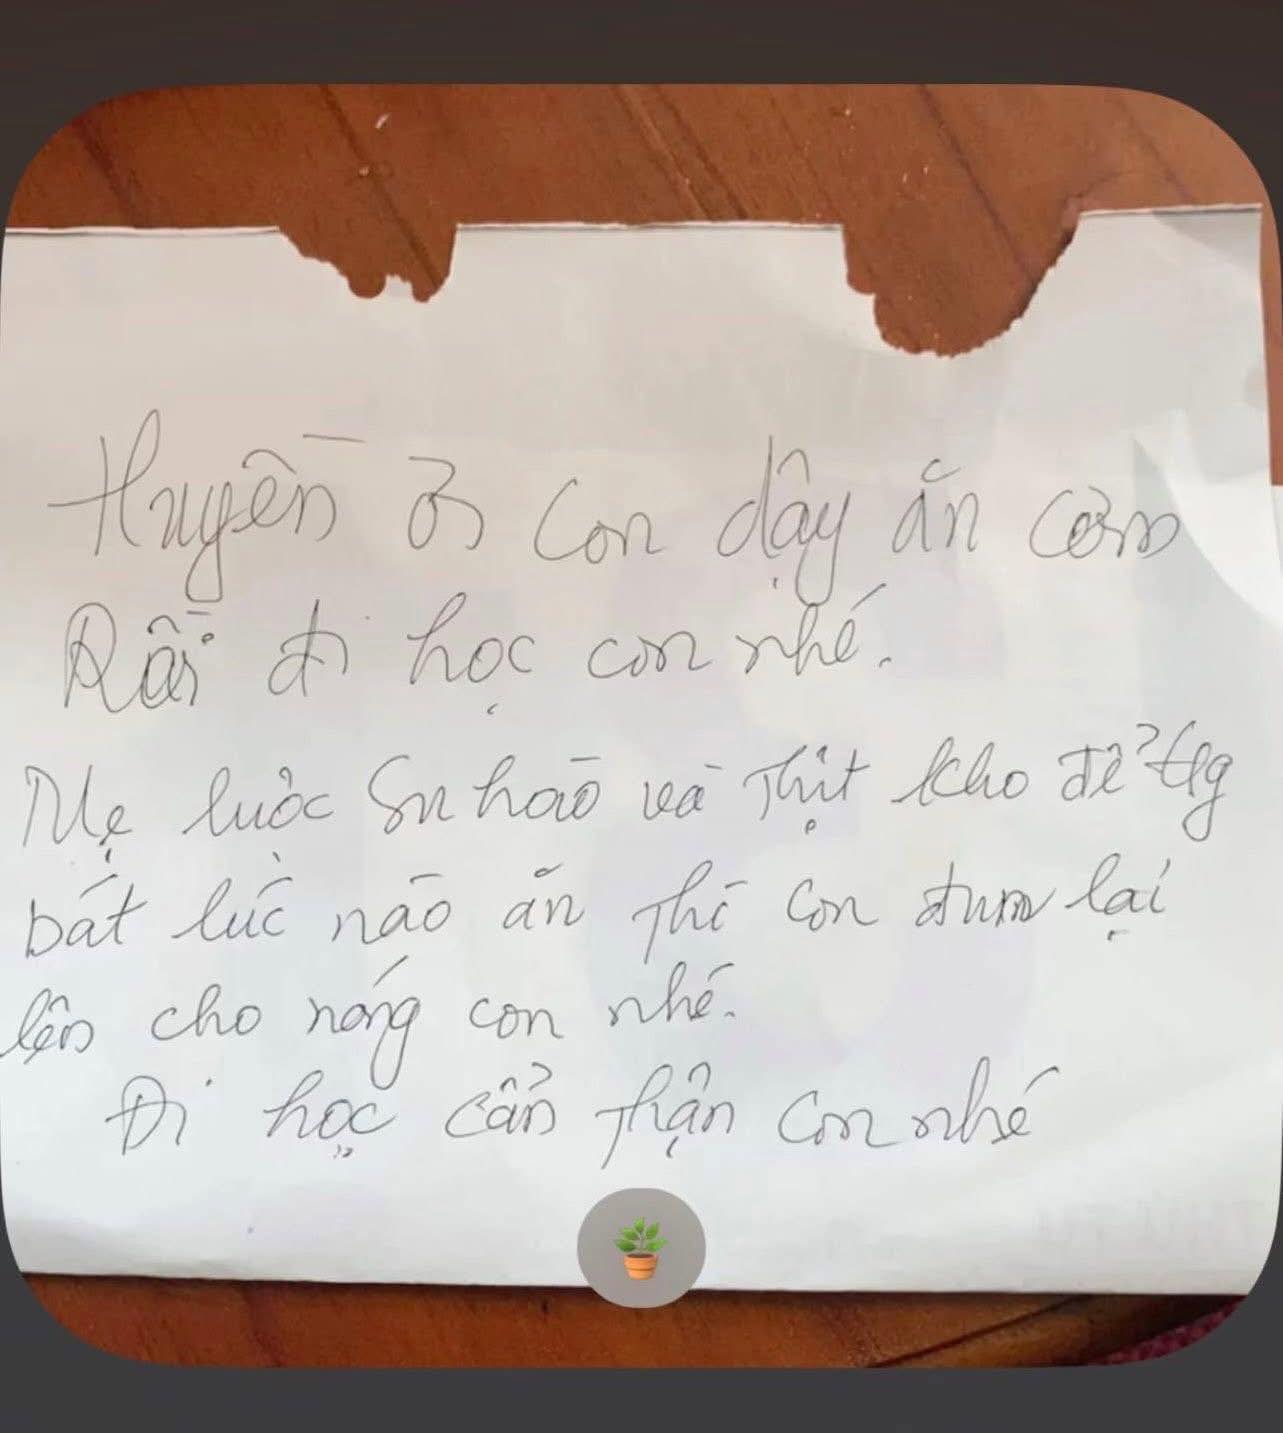 Huyền ơi con dậy ăn cơm
Rồi đi học con nhé.
Mẹ luộc Su hào và Thịt kho để tỏg
bát lúc nào ăn Thì con đum lại
lên cho nóng con nhé.
Đi học cẩn Thận con nhé